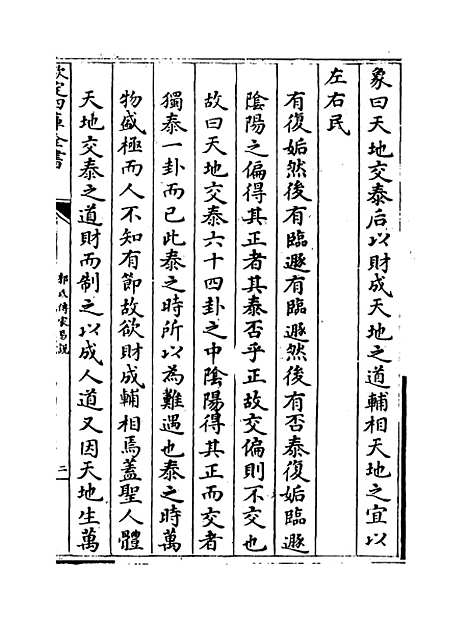 象曰天地交泰后以財成天地之道輔相天地之宜以
左右民
有復姤然後有臨遯有臨遯然後有否泰復姤臨遯
陰陽之偏得其正者其泰否乎正故交偏則不交也
故曰天地交泰六十四卦之中陰陽得其正而交者
獨泰一卦而已此泰之時所以為難遇也泰之時萬
物盛極而人不知有節故欲財成輔相焉蓋聖人體
天地交泰之道財而制之以成人道又因天地生萬
欽定四庫全書
郭氏傳家易說
二